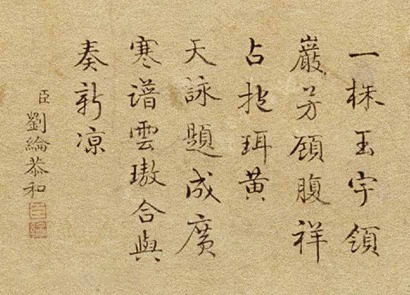 一株玉宇領
巖芳頋腹祥
占抱珥黄
天詠題成廣
寒譜雲璈合與
奏新凉
臣劉綸恭和